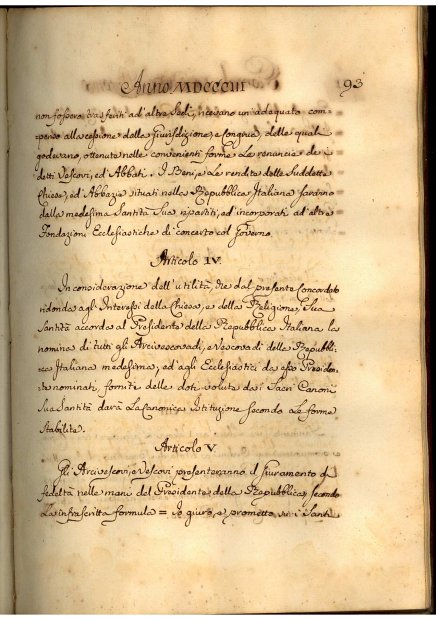 Anno MDCCCIII 93
non fossero trasferiti ad'altra Sedi, ricevano un'adeguato com-
penso alla cessione della Giurisdizione, e Congrua, delle quali
godevano, ottenute nelle convenienti forme le renuncie de i
detti Vescovi, ed Abbati. I Beni, e le rendite delle Suddette
Chiese, ed Abbazie situati nella Repubblica Italiana saranno
dalla medesima Santità Sua ripartiti, ed incorporati ad'altre
Fondazioni Ecclesiastiche di concerto col Governo.
Articolo IV.
In considerazione dell'utilità, che dal presente Concordato
ridonda agl'Interessi della Chiesa, e della Religione, Sua
Santità accorda al Presidente della Repubblica Italiana la
nomina di tutti gli Arcivescovadi, e Vescovadi della Repubbli-
ca Italiana medesima, ed'agli Ecclesiastici da esso Presiden-
te nominati, forniti delle doti volute da i Sacri Canoni
Sua Santità darà la Canonica Istituzione secondo le forme
stabilite.
Articolo V
Gli Arcivescovi, e Vescovi presenteranno il giuramento di
fedeltà nelle mani del Presidente della Repubblica, secondo
la infrascritta formula = Io giuro, e prometto su i Santi